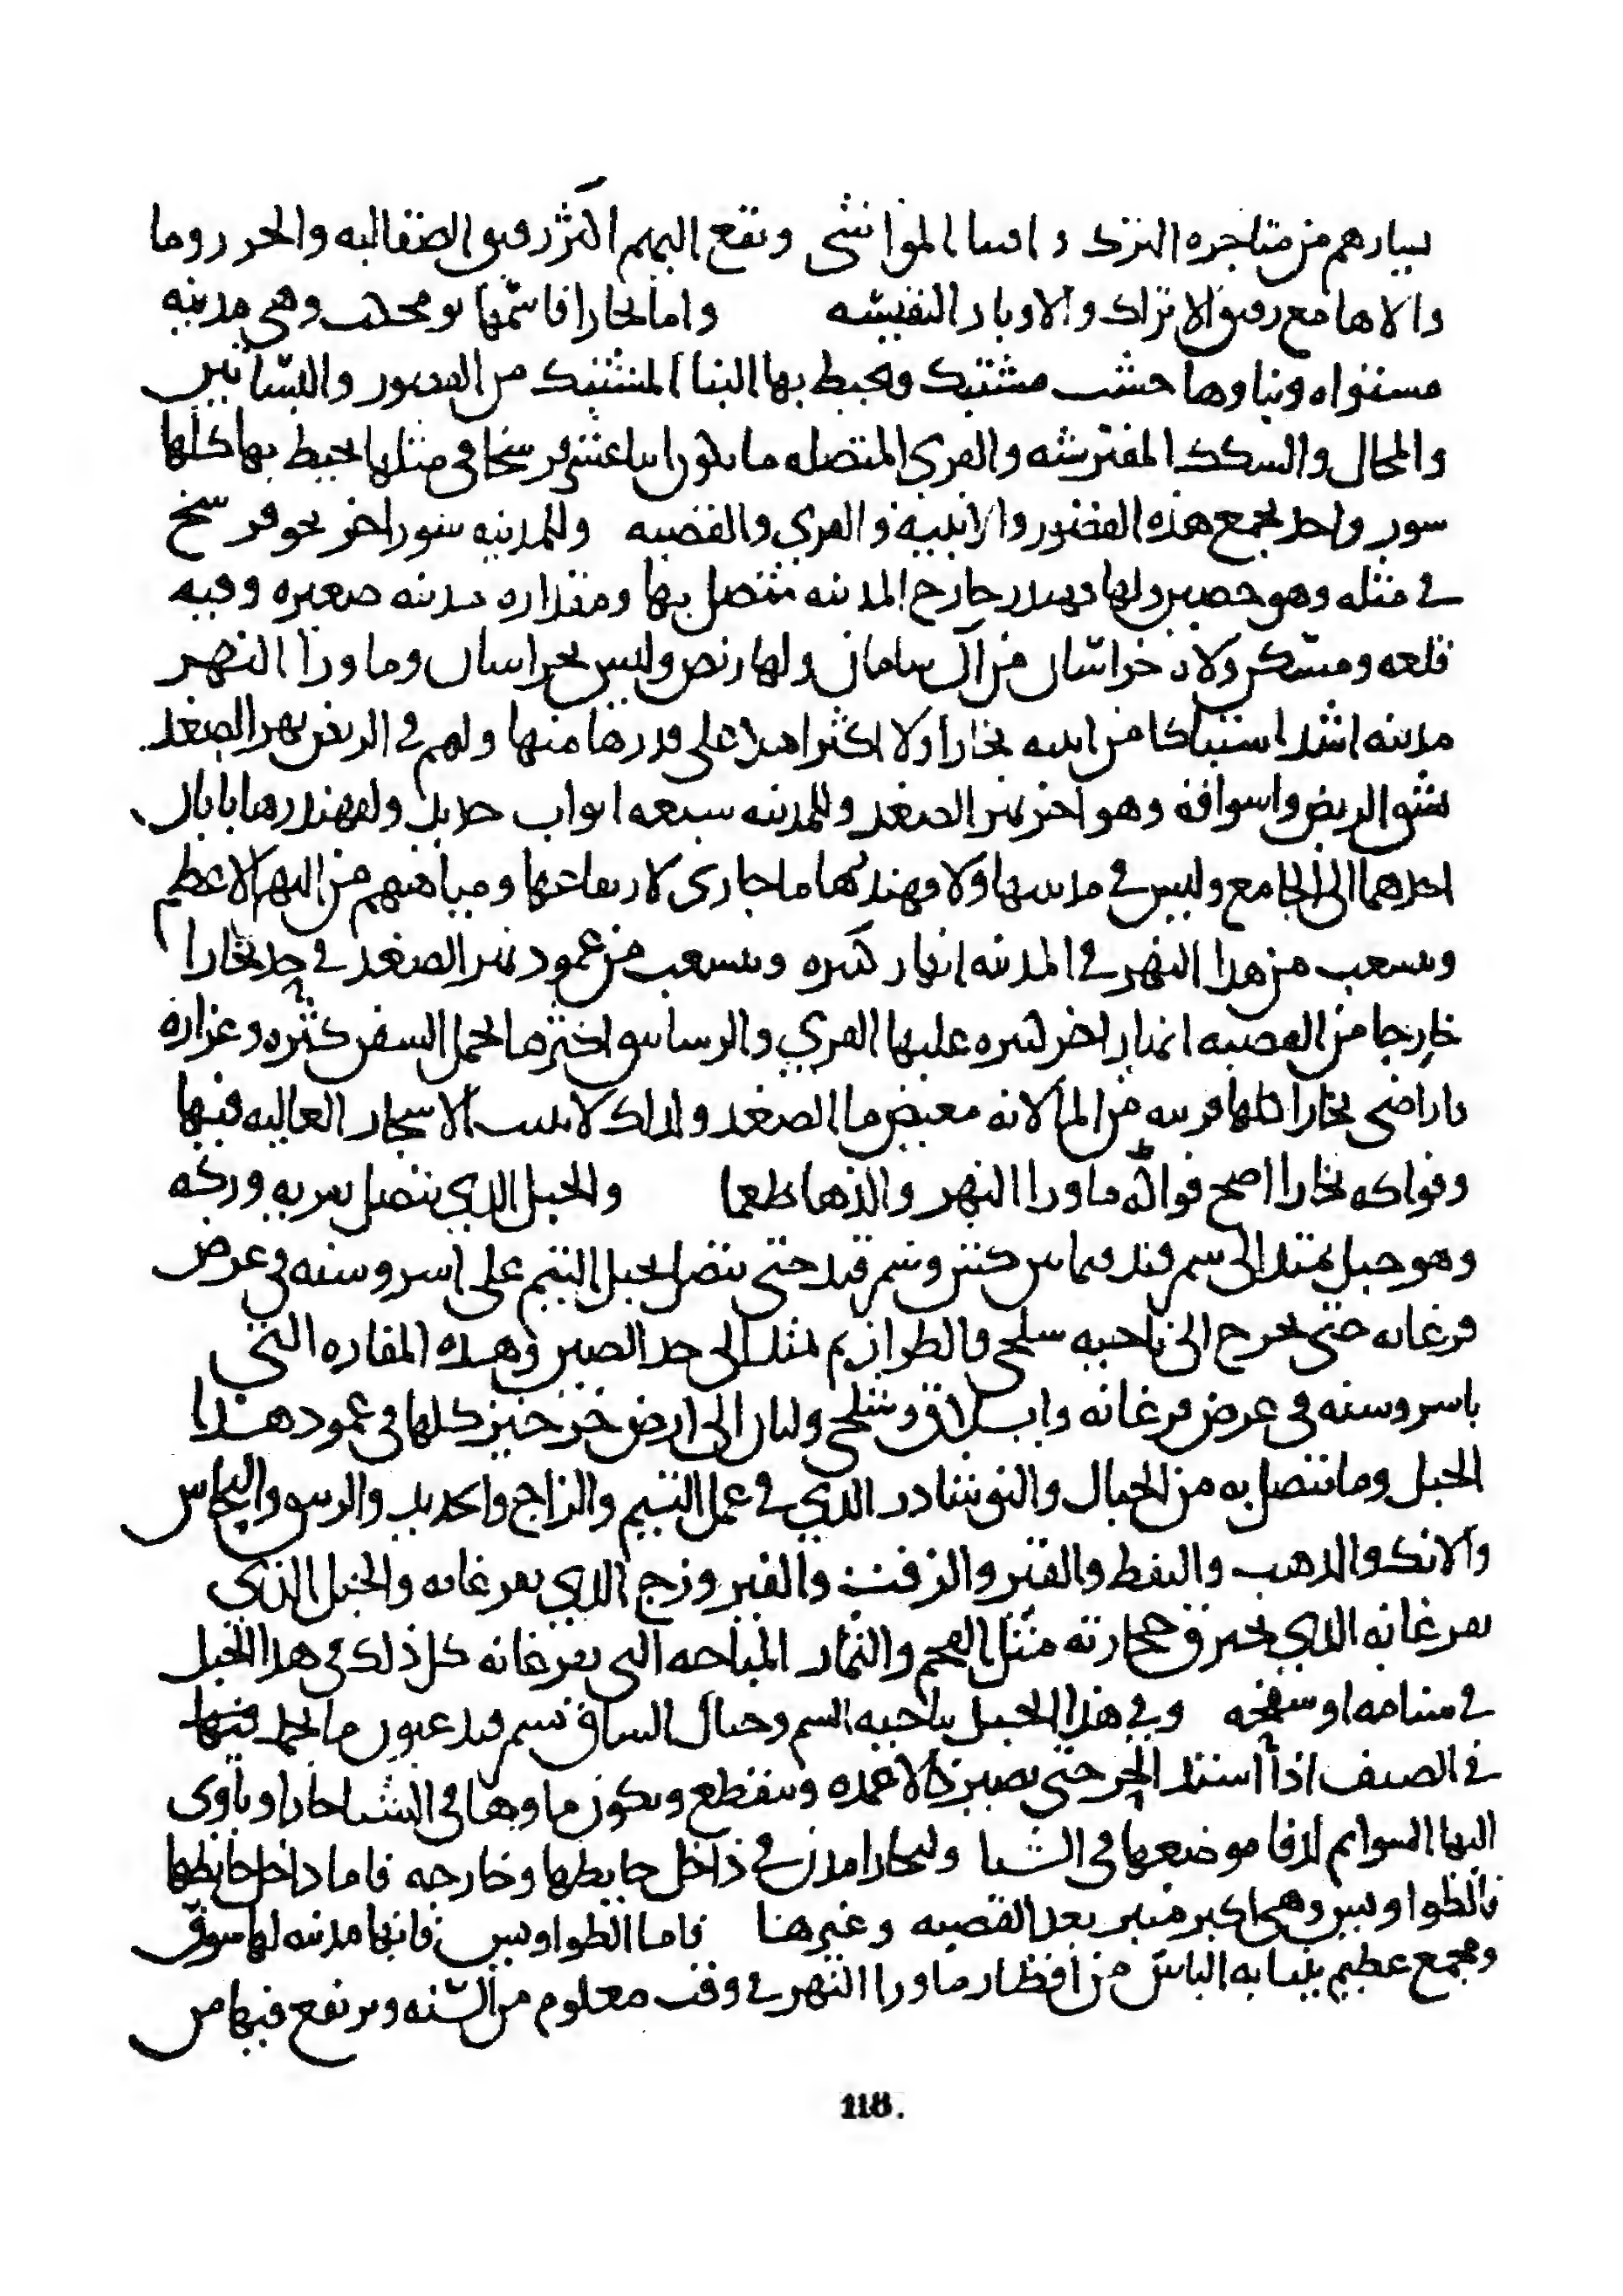 يسارهم من متاجره الترك واقتنا المواشي وتقع اليهم اكثر رقيق الصقالبه والخزر وما
والاها مع رقيق الاتراك والاوبار النفيسه واما بخارا فاسمها بومجكت وهي مدينه
مستواه وبناوها خشب مشتبك ويحيط بها البنا المشتبك من القصور والبساتين
والمحال والسكك المفترشه والقرى المتصله ما يكون اثنا عشر فرسخا في مثلها يحيط بها كلها
سور واحد يجمع هذه القصور والابنيه والقرى والقصبه وللمدينه سور اخر نحو فرسخ
في مثله وهو حصين ولها قهندر خارج المدينه متصل بها ومقداره مدينه صغيره وفيه
قلعه ومسكن ولاه خراسان من آل سامان ولها ربض وليس بخراسان وما ورا النهر
مدينه اشد اشتباكا من ابنيه بخارا ولا اكثر اهلا على قدرها منها ولهم في الربض نهر الصغد
يشق الربض واسواقه وهو اخر نهر الصغد وللمدينه سبعه ابواب حديد ولقهندرها بابان
احدهما الى الجامع وليس في مدينتها ولا قهندزها ما جاري لارتفاعها ومياههم من النهر الاعظم
ويتشعب من هذا النهر في المدينه انهار كثيره ويتشعب من عمود نهر الصغد في حد بخارا
خارجا من القصبه انهار اخر كثيره عليها القرى والرساتيق اكثرها يحمل السفن كثره وغزاره
باراضي بخارا كلها قريبه من الما لانه مغيض ما الصغد ولذلك لا ينبت الاشجار العاليه فيها
وفواكه بخارا اصح فواكه ما ورا النهر والذها طعما والجبل الذي يتصل بقريه وركه
وهو جبل يمتد الى سمرقند فيما بين كش وسمرقند حتى يتصل بجبل البتم على اسروسنه في عرض
فرغانه حتى يخرج الى ناحيه شلجي والطراز ثم يمتد الى حد الصين وهذه المفازه التي
باسروسنه في عرض فرغانه وايلاق وشلجي ولبان الى ارض خرخيز كلها في عمود هذا
الجبل وما يتصل به من الجبال والنوشادر الذي في عمل البتم والزاج والحديد والزيبق والنحاس
والانك والذهب والنفط والقير والزفت والفيروزج الذي بفرغانه والجبل الذي
بفرغانه الذي يحترق حجارته مثل الفحم والثمار المباحه التي بفرغانه كل ذلك في هذا الجبل
في سنامه او سفحه وفي هذا الجبل بناحيه البتم وجبال الساق بسمرقند عيون ما يجمد فيها
في الصيف اذا اشتد الحر حتى يصير كالاعمده وينقطع ويكون ماوها في الشتا حارا وياوى
اليها السوايم لدفا موضعها في الشتا ولبخارا مدن في داخل حايطها وخارجه فاما داخل حايطها
فالطواويس وهي اكبر منبر بعد القصبه وغيرها فاما الطواويس فانها مدينه لها سوق
ومجمع عظيم ينتابه الناس من اقطار ما ورا النهر في وقت معلوم من السنه ويرتفع فيها من
118.